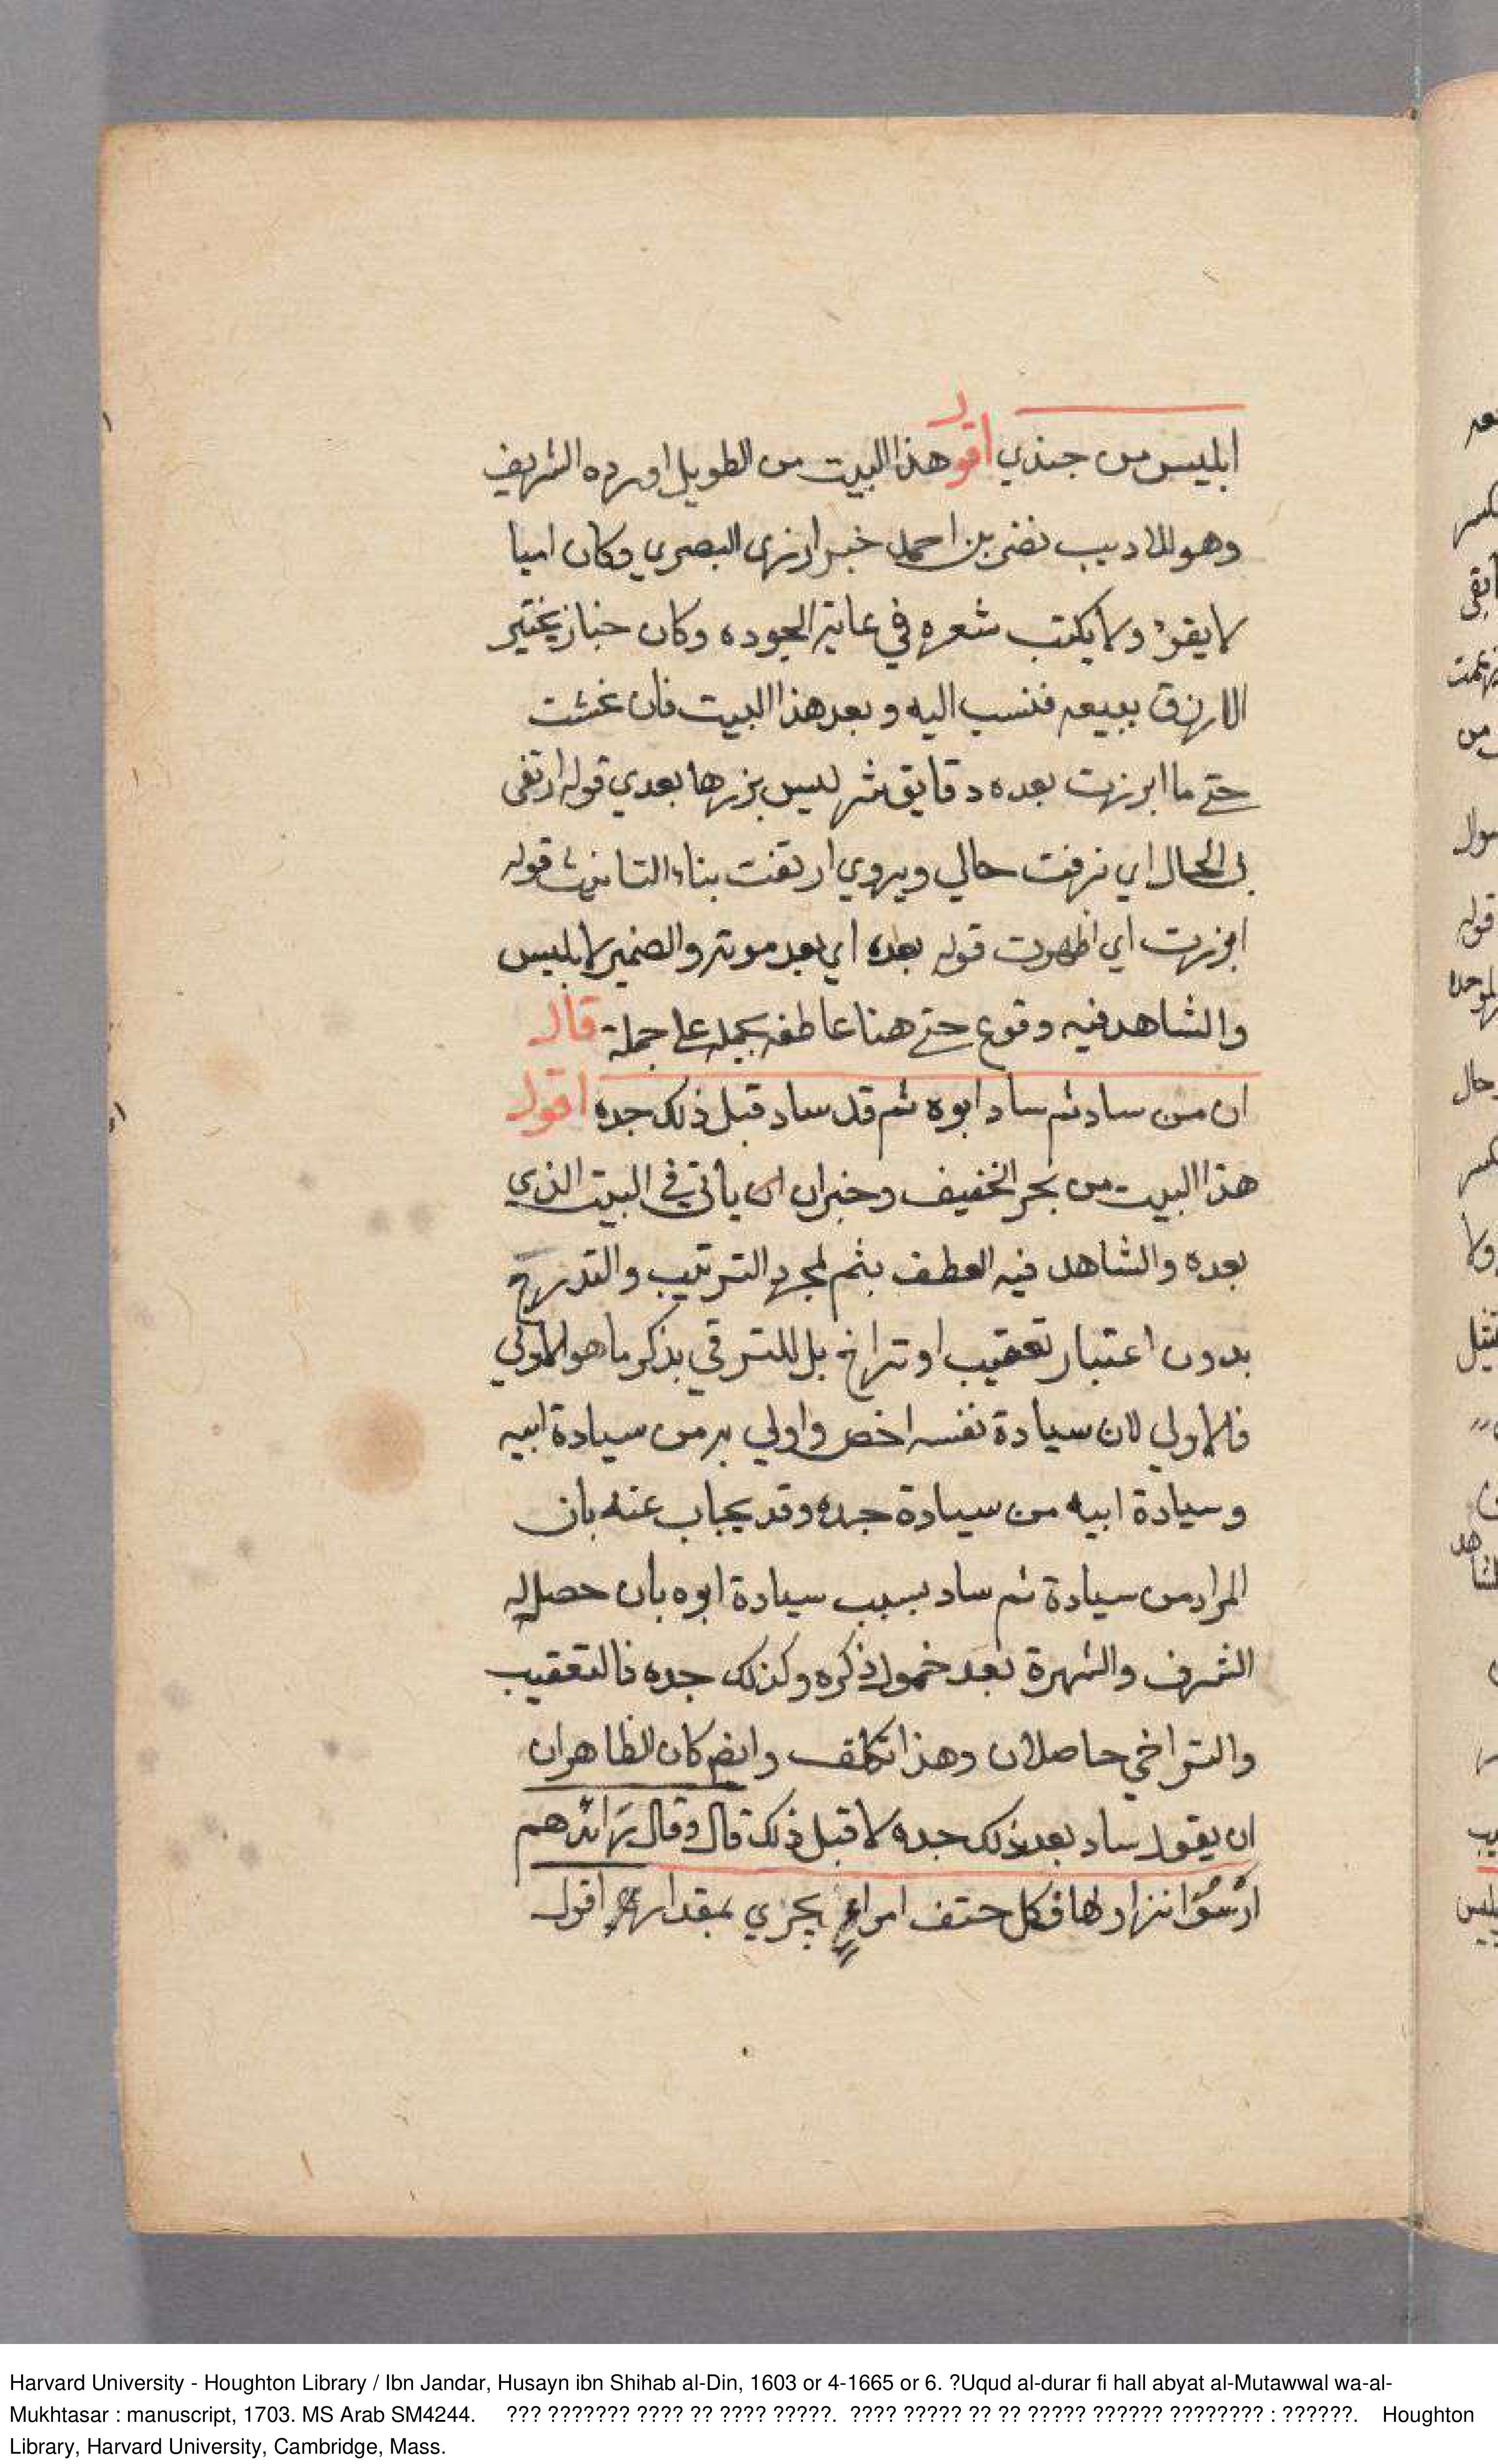 ابليس من جندي اقول هذا البيت من الطويل اورده الشريف
وهو للاديب نضر بن احمد خبر ارزى البصري وكان اميا
لا يقرؤ ولا يكتب شعره في غاية الجوده وكان خباز يختبر
الارزق ببيعه فنسب اليه و بعد هذا البيت فان عشت
حتى ما ابرزت بعده دقايق شر ليس يبرزها بعدي قوله ارتقى
بى الحال اي ترقت حالي ويروي ارتقت بتاء التانيث قوله
ابرزت اي اظهرت قوله بعده اي بعد موته والضمير لابليس
والشاهد فيه وقوع حتى هنا عاطفه جمله على جملة قال
ان من ساد ثم ساد ابوه ثم قد ساد قبل ذلك جده اقول
هذا البيت من بحر الخفيف وخبر ان ان ياتي في البيت الذي
بعده والشاهد فيه العطف بثم لمجرد الترتيب والتدريج
بدون اعتبار تعقيب او تراخ بل للترقي بذكر ما هو الاولي
فالاولي لان سيادة نفسه اخص واولي به من سيادة ابيه
وسيادة ابيه من سيادة جده وقد يجاب عنه بان
المراد من سيادة ثم ساد بسبب سيادة ابوه بان حصل له
الشرف والشهرة بعد خمول ذكره وكذلك جده فالتعقيب
والتراخي حاصلان وهذا تكلف وايضا كان الظاهر ان
ان يقول ساد بعد ذلك جده لا قبل ذلك قال وقال رائدهم
ارسوا نزاولها فكل حتف امرءٍ يجري بمقدار اقول
Harvard University - Houghton Library / Ibn Jandar, Husayn ibn Shihab al-Din, 1603 or 4-1665 or 6. ?Uqud al-durar fi hall abyat al-Mutawwal wa-al-
Mukhtasar : manuscript, 1703. MS Arab SM4244. ??? ??????? ???? ?? ???? ?????. ???? ????? ?? ?? ????? ?????? ???????? : ??????. Houghton
Library, Harvard University, Cambridge, Mass.